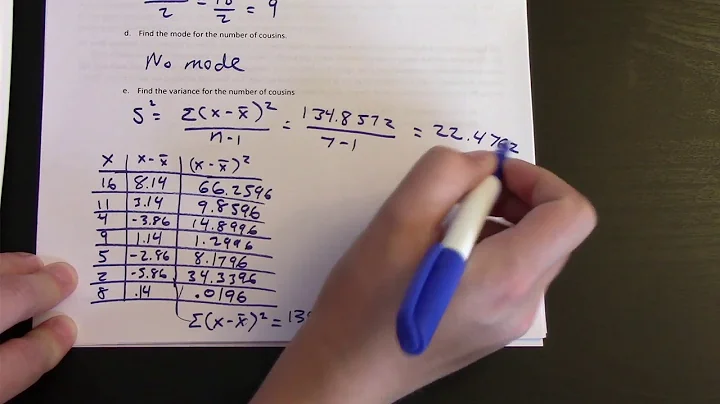 2 = 18/2 = 9
d. Find the mode for the number of cousins.
No mode
e. Find the variance for the number of cousins
S² = Σ(x-x̄)²/n-1 = 134.8572/7-1 = 22.4762
x | x-x̄ | (x-x̄)²
16 | 8.14 | 66.2596
11 | 3.14 | 9.8596
4 | -3.86 | 14.8996
9 | 1.14 | 1.2996
5 | -2.86 | 8.1796
2 | -5.86 | 34.3396
8 | .14 | .0196
Σ(x-x̄)² = 13